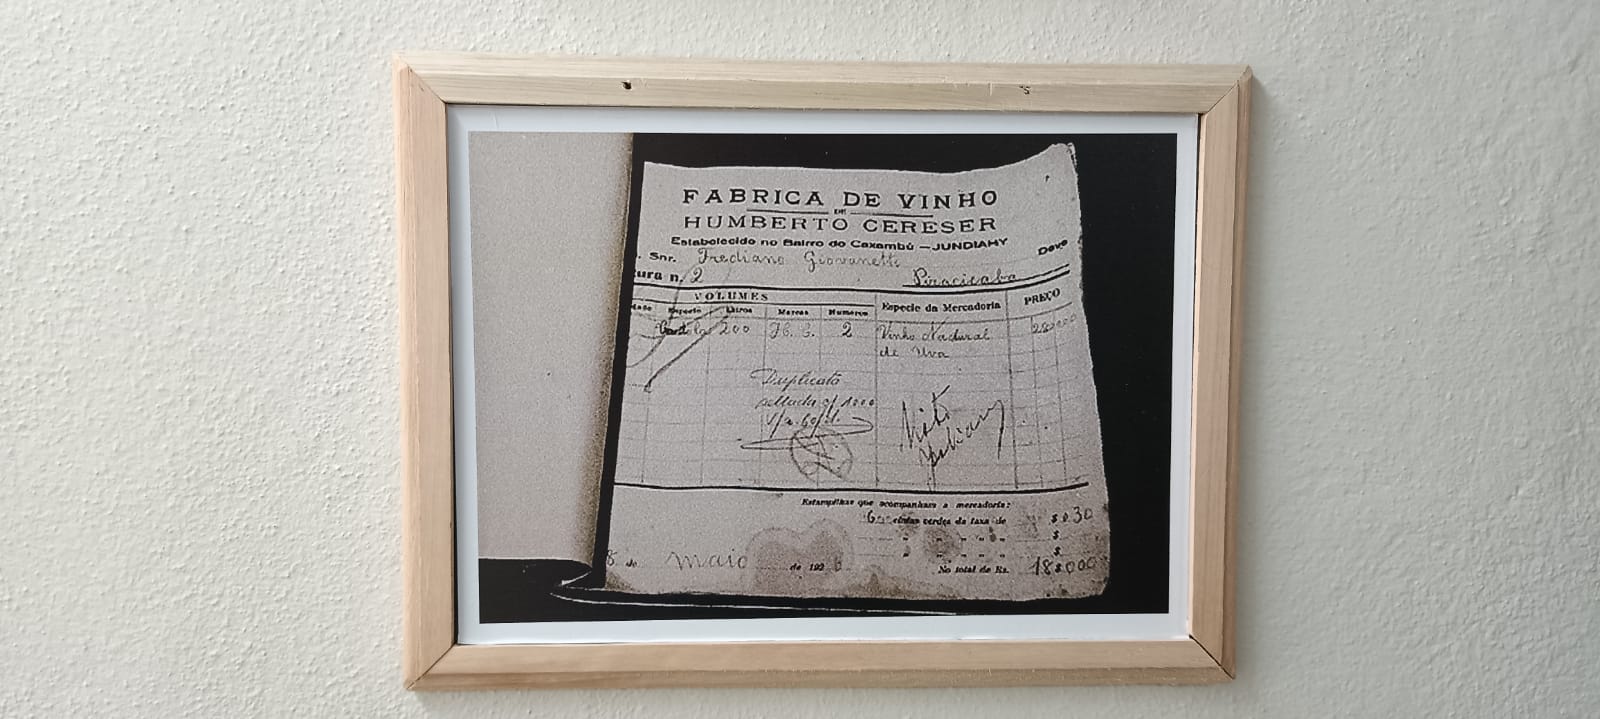 FABRICA DE VINHO
DE
HUMBERTO CERESER
Estabelecido no Bairro do Caxambú — JUNDIAHY
Snr. Frediano Giovanetti Deve
tura n. 2 Piracicaba
VOLUMES Especie da Mercadoria PREÇO
dade Especie Litros Marcas Numeros
200 H. C. 2 Vinho Natural
de Uva
Duplicata
sellada c/ 1000
Estampilhas que acompanham a mercadoria:
60 cintas verdes da taxa de $ 0.30
" " " " " $
" " " " " $
8 de Maio de 192 No total de Rs. 18$000